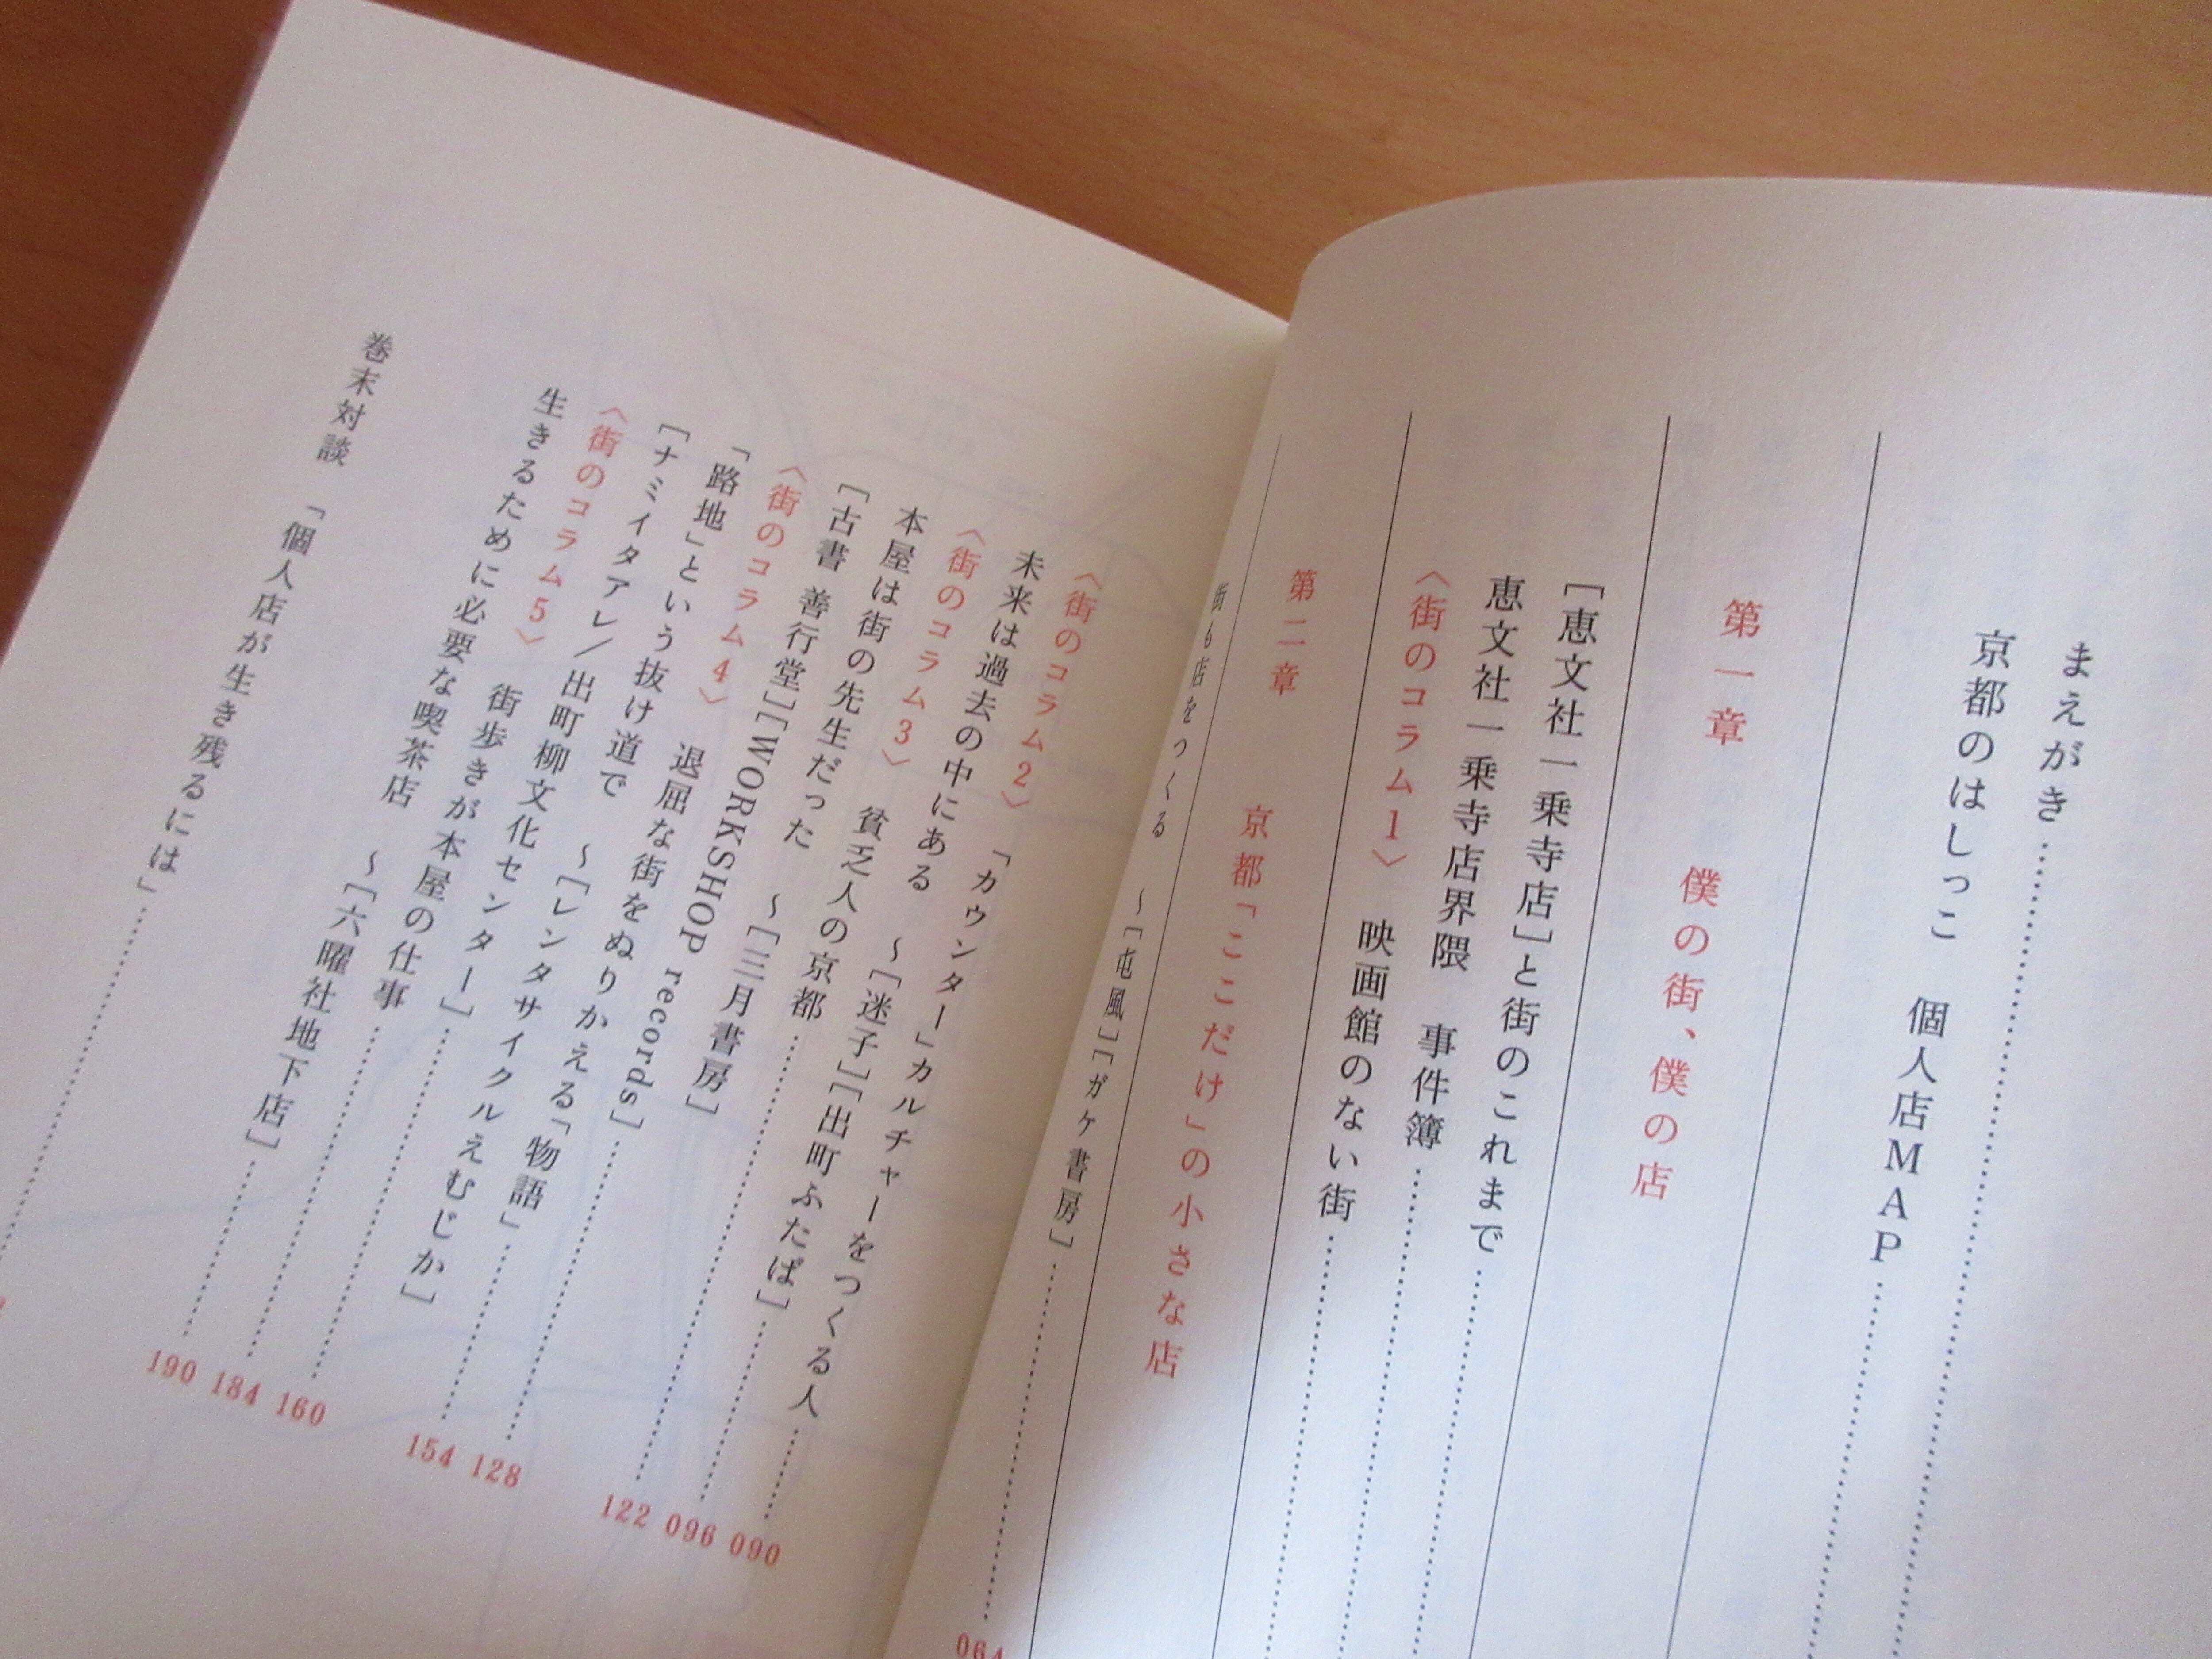 まえがき
京都のはしっこ 個人店MAP
第一章 僕の街、僕の店
［恵文社一乗寺店］と街のこれまで
恵文社一乗寺店界隈 事件簿
〈街のコラム1〉 映画館のない街
第二章 京都「ここだけ」の小さな店
街も店をつくる ～［屯風］［ガケ書房］ 064
〈街のコラム2〉 「カウンター」カルチャーをつくる人 090
未来は過去の中にある ～［迷子］［出町ふたば］ 096
〈街のコラム3〉 貧乏人の京都 122
本屋は街の先生だった ～［三月書房］
［古書 善行堂］［WORKSHOP records］ 128
〈街のコラム4〉 退屈な街をぬりかえる「物語」 154
「路地」という抜け道で ～［レンタサイクルえむじか］
［ナミイタアレ／出町柳文化センター］ 160
〈街のコラム5〉 街歩きが本屋の仕事 184
生きるために必要な喫茶店 ～［六曜社地下店］ 190
巻末対談 「個人店が生き残るには」